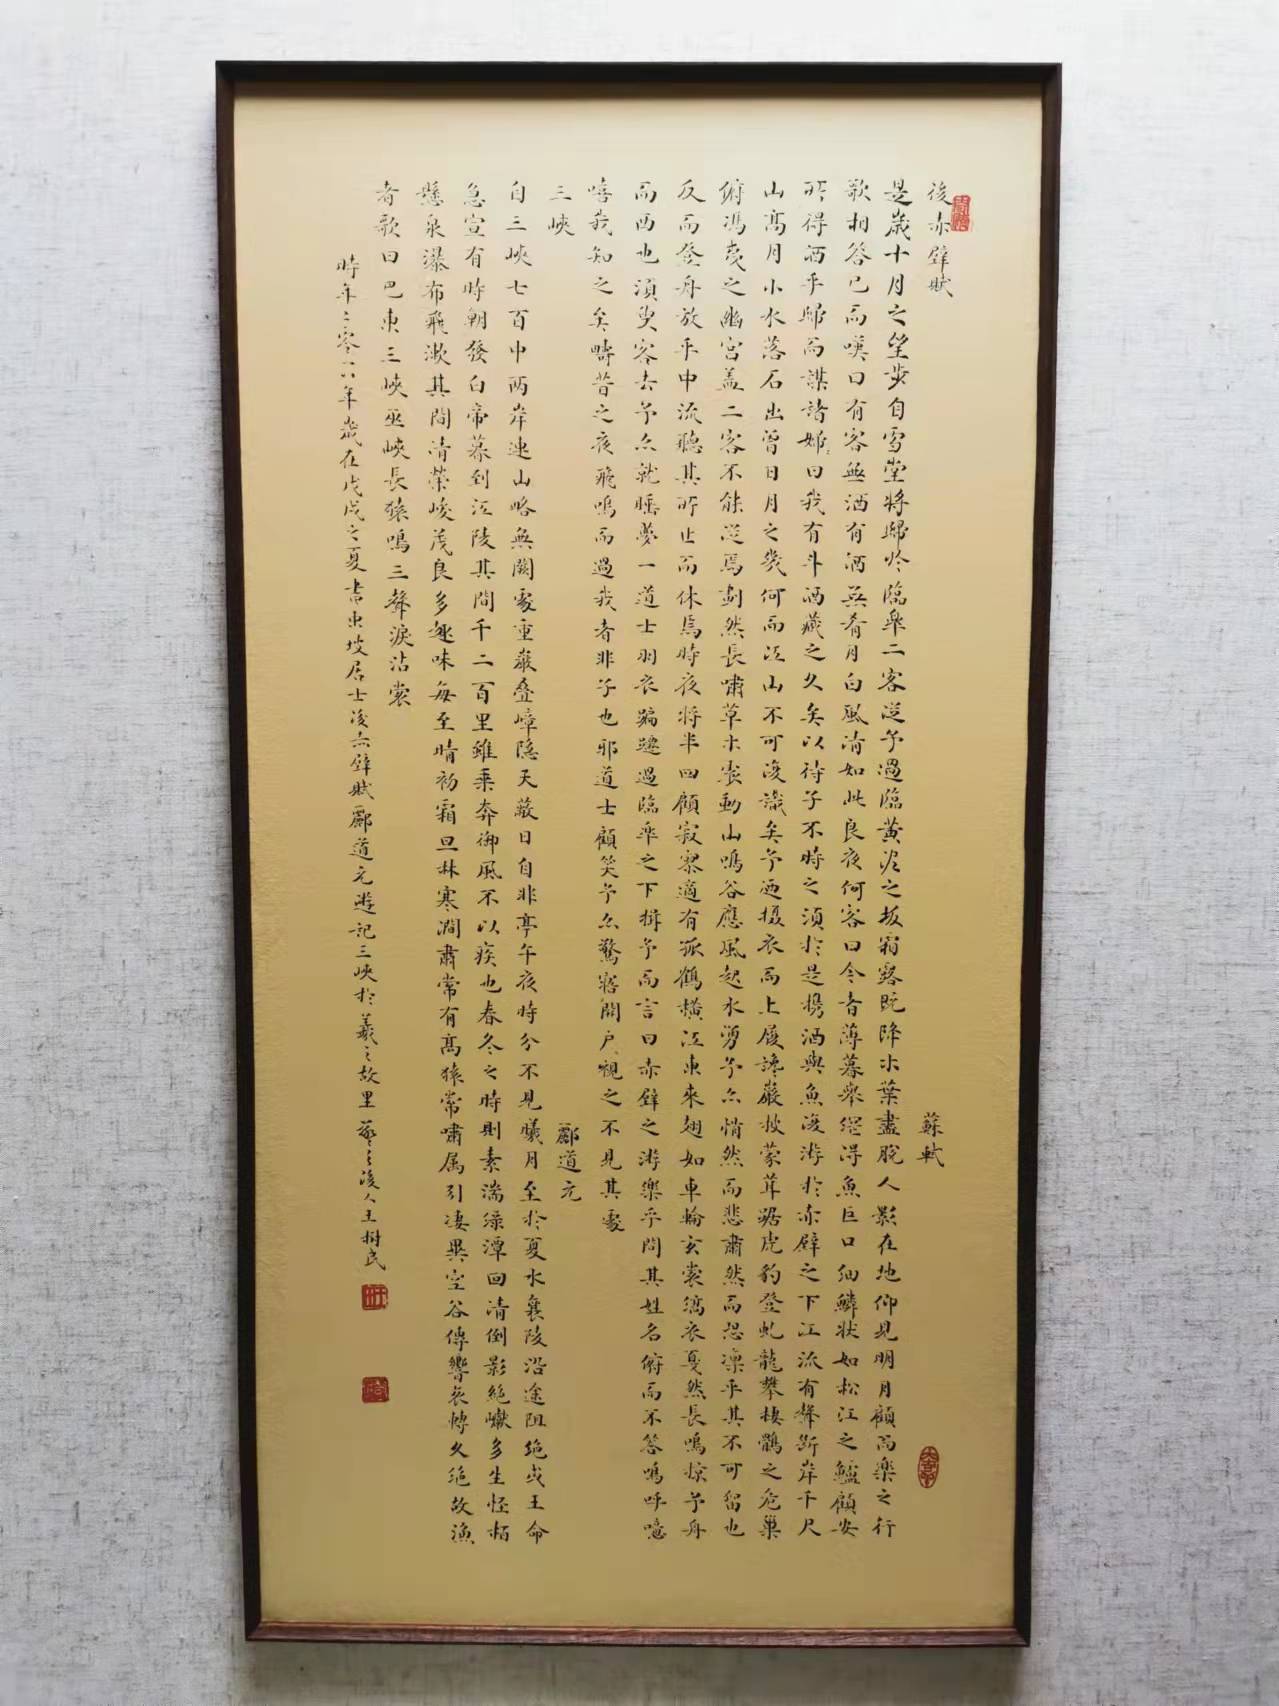 後赤壁賦 蘇軾
是歲十月之望步自雪堂將歸於臨皋二客從予過臨黃泥之坂霜露既降木葉盡脫人影在地仰見明月顧而樂之行
歌相答已而嘆曰有客無酒有酒無肴月白風清如此良夜何客曰今者薄暮舉網得魚巨口細鱗狀如松江之鱸顧安
所得酒乎歸而謀諸婦曰我有斗酒藏之久矣以待子不時之須於是攜酒與魚復游於赤壁之下江流有聲斷岸千尺
山高月小水落石出曾日月之幾何而江山不可復識矣予乃攝衣而上履讒巖披蒙茸踞虎豹登虬龍攀棲鶻之危巢
俯馮夷之幽宮蓋二客不能從焉劃然長嘯草木震動山鳴谷應風起水湧予亦悄然而悲肅然而恐凜乎其不可留也
反而登舟放乎中流聽其所止而休焉時夜將半四顧寂寥適有孤鶴橫江東來翅如車輪玄裳縞衣戛然長鳴掠予舟
而西也須臾客去予亦就睡夢一道士羽衣蹁躚過臨皋之下揖予而言曰赤壁之游樂乎問其姓名俯而不答嗚呼噫
嘻我知之矣疇昔之夜飛鳴而過我者非子也邪道士顧笑予亦驚寤開户視之不見其處
三峽 酈道元
自三峽七百中兩岸連山略無闕處重巖疊嶂隱天蔽日自非亭午夜時分不見曦月至於夏水襄陵沿途阻绝或王命
急宣有時朝發白帝暮到江陵其間千二百里雖乘奔御風不以疾也春冬之時則素湍绿潭回清倒影絕巘多生怪柏
懸泉瀑布飛漱其間清榮峻茂良多趣味每至晴初霜旦林寒澗肅常有高猿常嘯属引凄異空谷傳響哀轉久绝故漁
者歌曰巴東三峽巫峽長猿鳴三聲淚沾裳
時年二零一八年歲在戊戌之夏書東坡居士後赤壁賦酈道元遊記三峽於羲之故里羲之後人王樹民